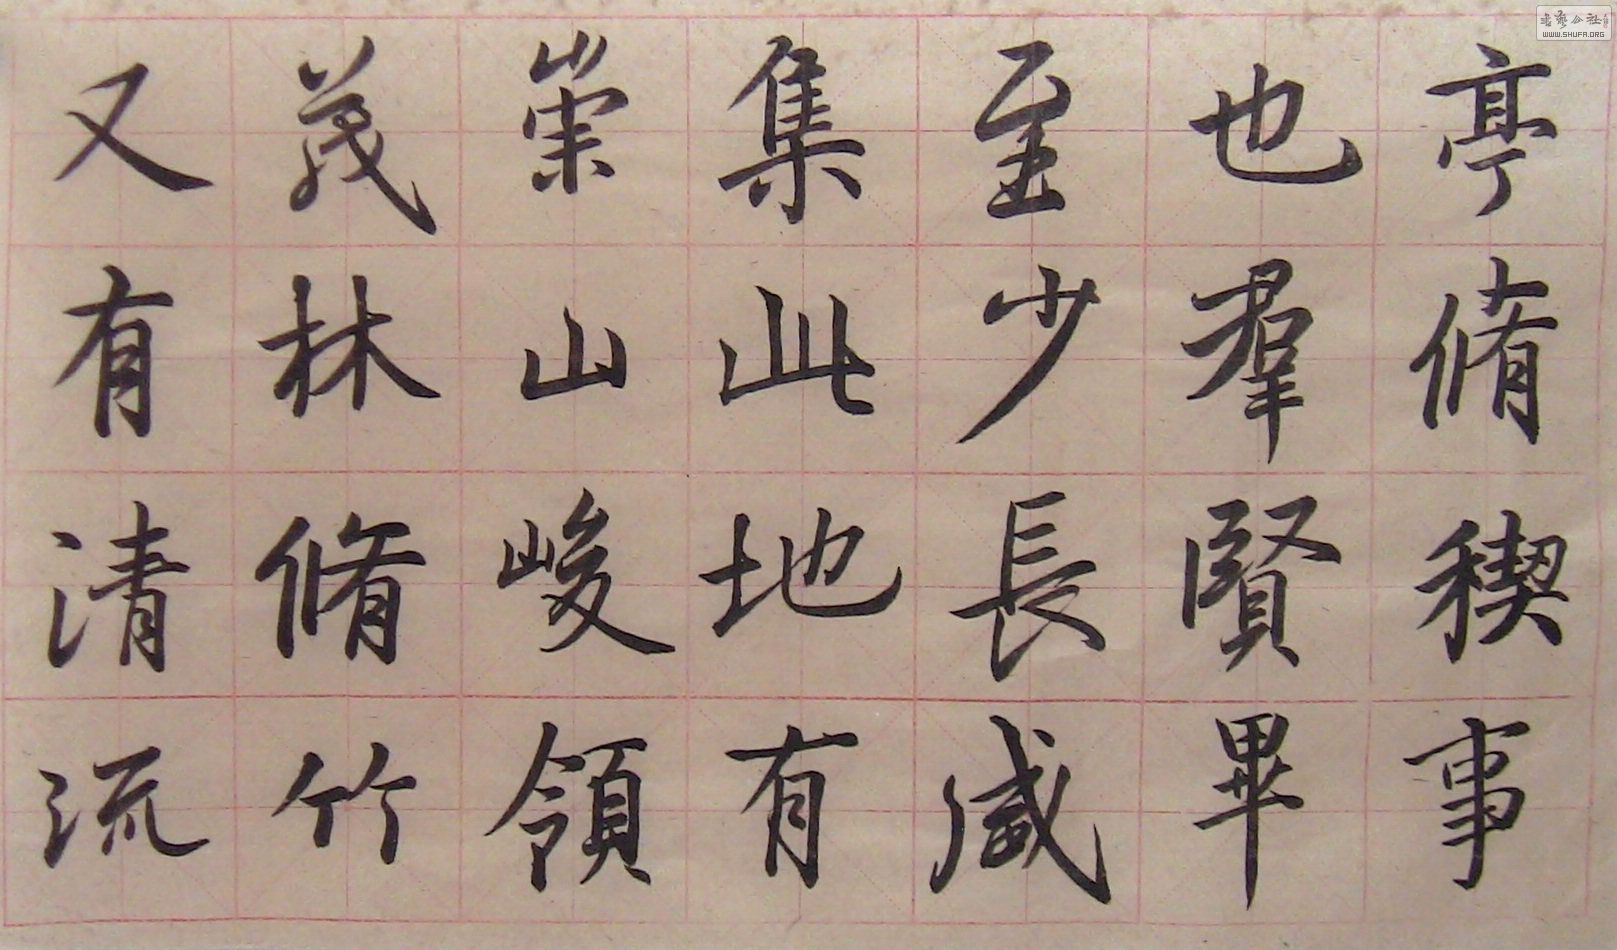 亭脩稧事
也羣賢畢
至少長咸
集此地有
崇山峻領
茂林脩竹
又有清流
书艺公社
WWW.SHUFA.ORG